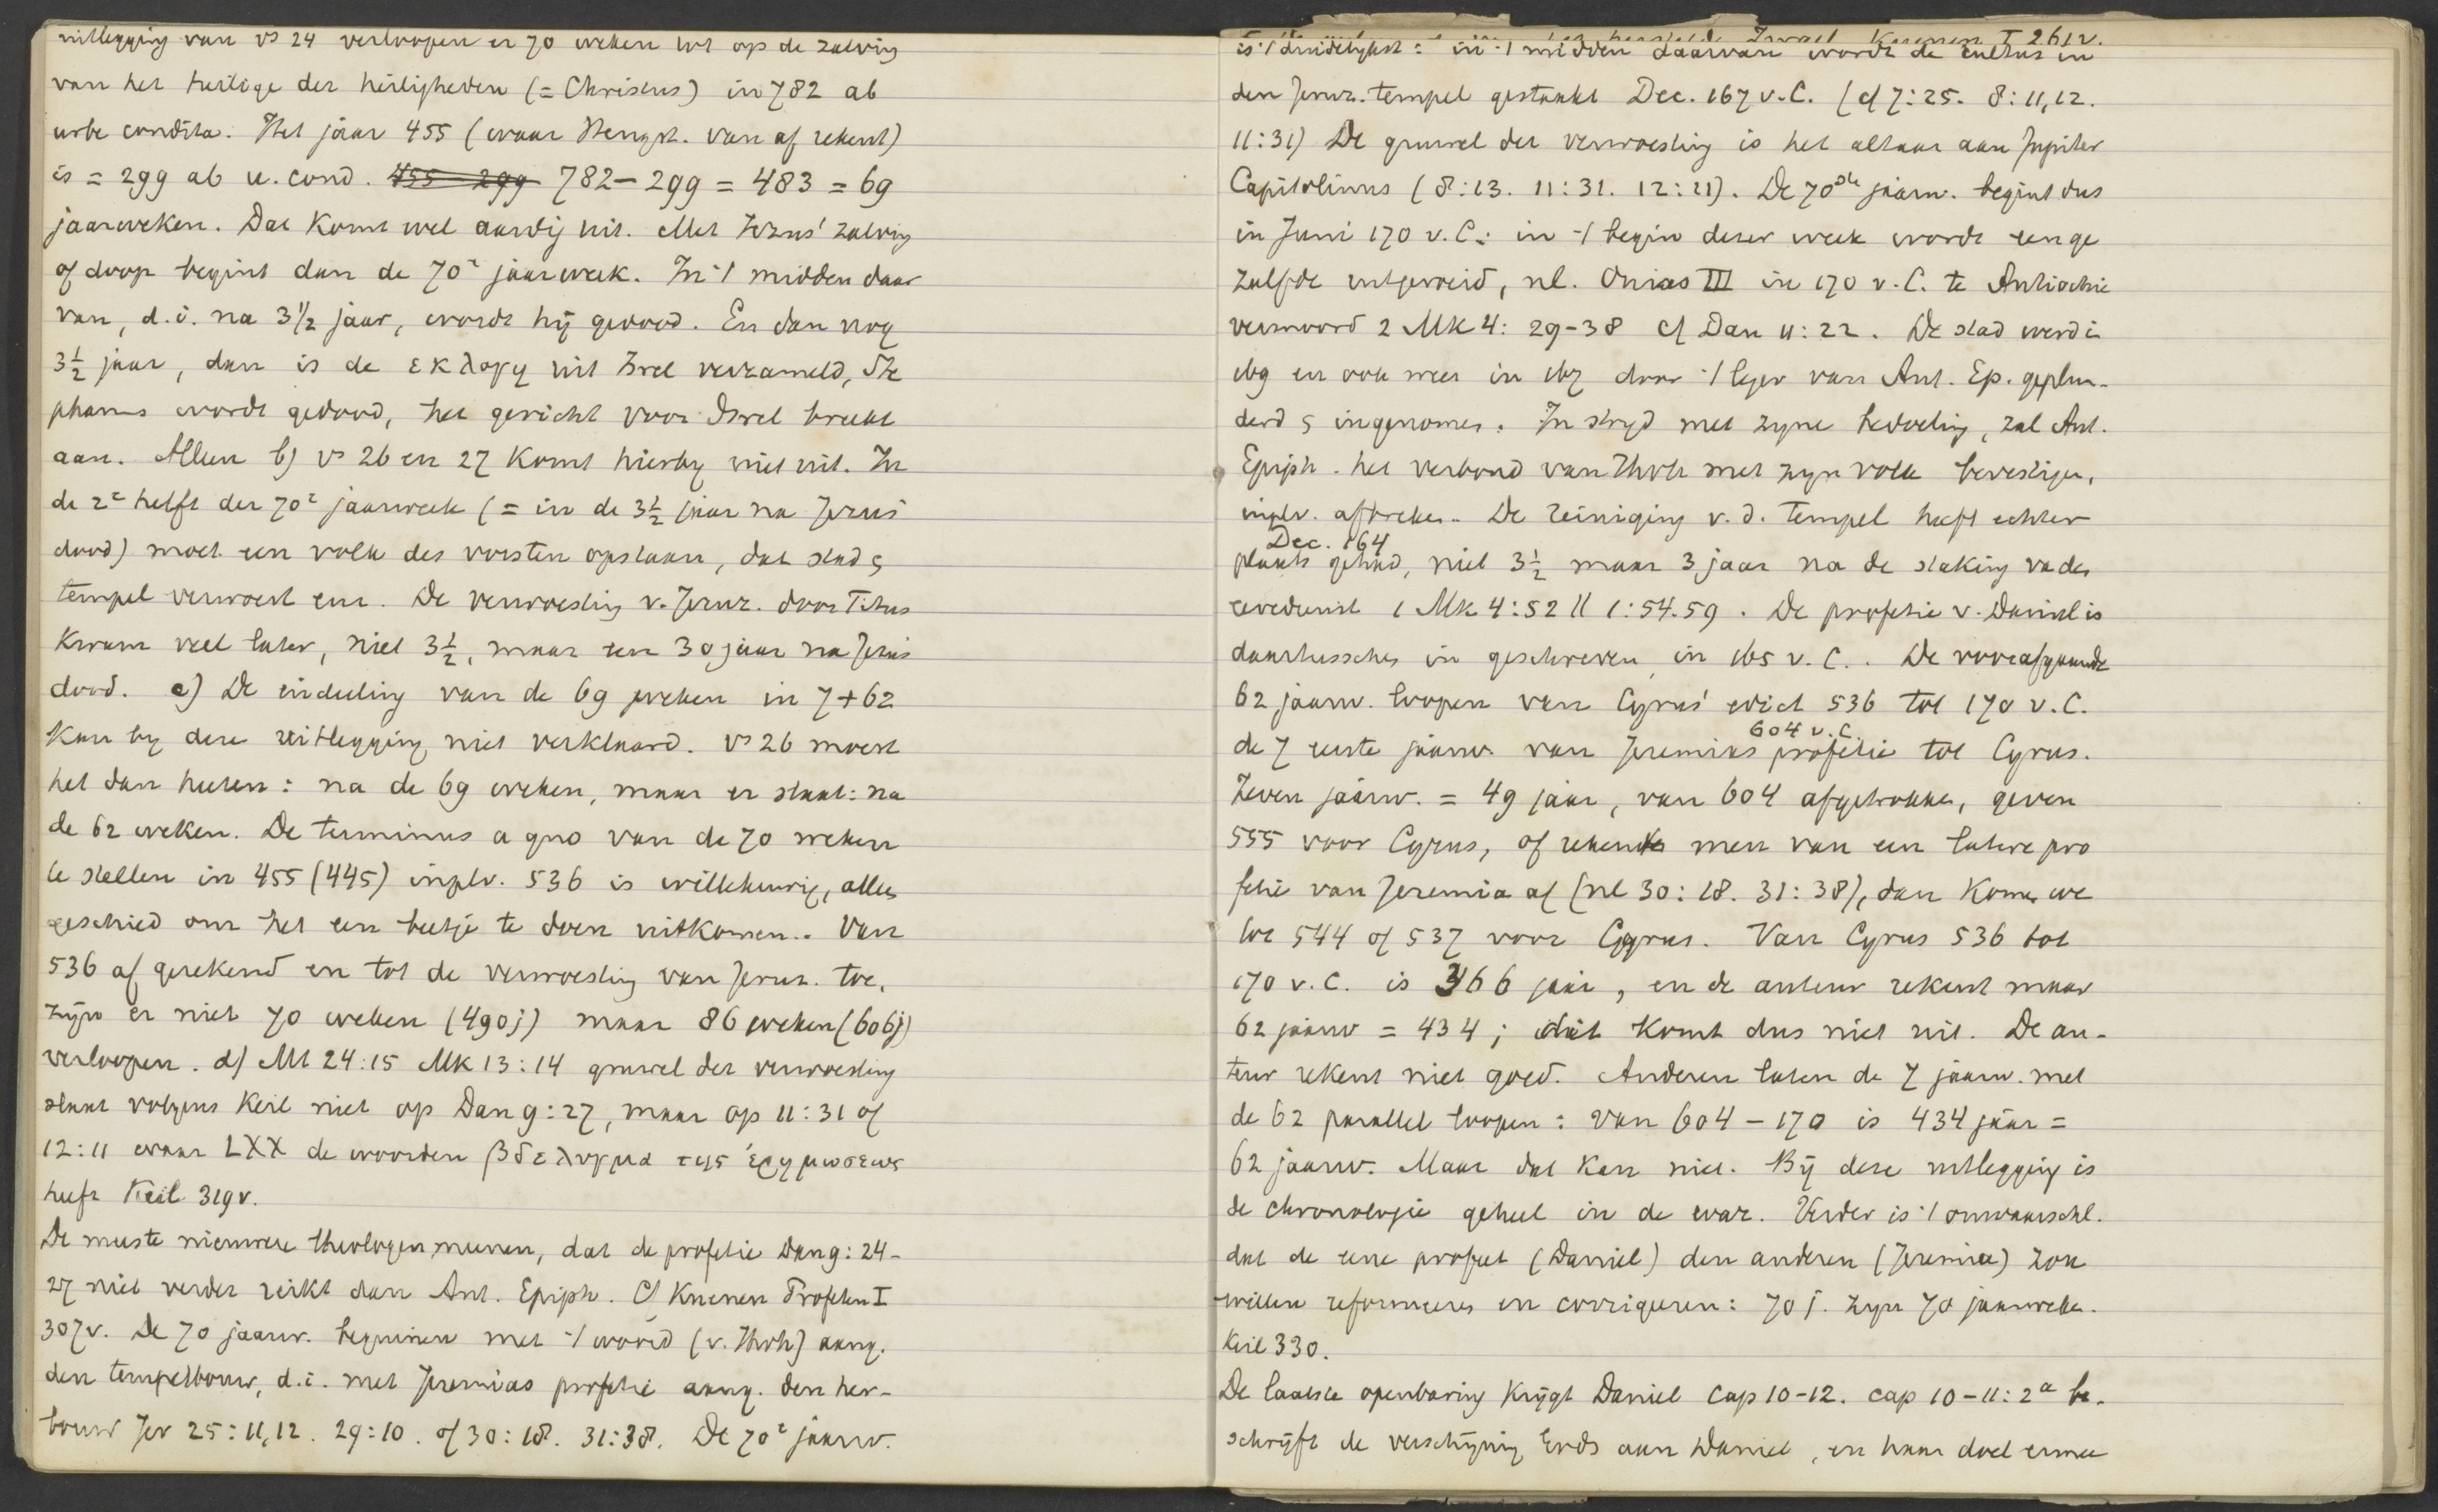 uitlegging van vs 24 verloopen er 70 weken tot op de zalving
van het heilige der heiligheden (= Christus) in 782 ab
urbe condita. Het jaar 455 (waar Hengst. van af rekent)
is = 299 ab u. cond. 455 – 299 782 – 299 = 483 = 69
jaarweken. Dat komt wel aardig uit. Met Jezus' zalving
of doop begint dan de 70e jaarweek. In 't midden daar
van, d.i. na 3 1/2 jaar, wordt hij gedood. En dan nog
3 1/2 jaar, dan is de εκλογη uit Israel verzameld, Ste
phanus wordt gedood, het gericht voor Israel breekt
aan. Alleen b) vs 26 en 27 komt hierby niet uit. In
de 2e helft der 70e jaarweek (= in de 3 1/2 jaar na Jezus'
dood) moet een volk des vorsten opstaan, dat stad &
tempel verwoest enz. De verwoesting v. Jeruz. door Titus
kwam veel later, niet 3 1/2, maar ten 30 jaar na Jezus
dood. c) De indeeling van de 69 weken in 7 + 62
kan by deze uitlegging niet verklaard. vs 26 moest
het dan heeten: na de 69 weken, maar er staat: na
de 62 weken. De terminus a quo van de 70 weken
te stellen in 455 (445) inplv. 536 is willekeurig, alles
geschied om het een beetje te doen uitkomen. Van
536 af gerekend en tot de verwoesting van Jeruz. toe,
zijn er niet 70 weken (490 j) maar 86 weken (606 j)
verloopen. d) Mt 24:15 Mk 13:14 gruwel der verwoesting
slaat volgens Keil niet op Dan 9:27, maar op 11:31 of
12:11 waar LXX de woorden βδελυγμα της ἐρημωσεως
heeft Keil 319v.
De meeste nieuwere theologen meenen, dat de profetie Dan 9:24-
27 niet verder reikt dan Ant. Epiph. Cf Kuenen Profeten I
307v. De 70 jaarw. beginnen met 't woord (v. Jhvh) aang.
den tempelbouw, d.i. met Jeremias profetie aang. den her-
bouw Jer 25:11,12. 29:10. of 30:18. 31:38. De 70e jaarw.
Israel Kuenen I 261v.
is 't duidelykst: in 't midden daarvan wordt de cultus in
den Jeruz. tempel gestaakt Dec. 167 v.C. (cf 7:25. 8:11,12.
11:31) De gruwel der verwoesting is het altaar aan Jupiter
Capitolinus (8:13. 11:31. 12:11). De 70ste jaarw. begint dus
in Juni 170 v.C.: in 't begin dezer week wordt een ge
zalfde uitgeroeid, nl. Onias III in 170 v.C. te Antiochie
vermoord 2 Mk 4:29-38 cf Dan 11:22. De stad werd in
169 en ook weer in 167 door 't leger van Ant. Ep. geplun-
derd & ingenomen. In stryd met zyne bedoeling, zal Ant.
Epiph. het verbond van Jhvh met zyn volk bevestigen,
inplv. afbreken. De reiniging v.d. tempel heeft echter
Dec. 164
plaats gehad, niet 3 1/2 maar 3 jaar na de staking va den
eeredienst 1 Mk 4:52 || 1:54.59. De profetie v. Daniel is
daartusschen in geschreven in 165 v.C. De voorafgaande
62 jaarw. loopen van Cyrus' edict 536 tot 170 v.C.
604 v.C.
de 7 eerste jaarw. van Jeremias profetie tot Cyrus.
Zeven jaarw. = 49 jaar, van 604 afgetrokken, geven
555 voor Cyrus, of rekent men van een latere pro
fetie van Jeremia af (nl 30:18. 31:38), dan komen we
tot 544 of 537 voor Cyrus. Van Cyrus 536 tot
170 v.C. is 366 jaar, en de auteur rekent maar
62 jaarw = 434; dit komt dus niet uit. De au-
teur rekent niet goed. Anderen laten de 7 jaarw. met
de 62 parallel loopen: van 604 – 170 is 434 jaar =
62 jaarw. Maar dat kan niet. Bij deze uitlegging is
de chronologie geheel in de war. Verder is 't onwaarschl.
dat de eene profeet (Daniel) den anderen (Jeremia) zou
willen reformeeren en corrigeeren: 70 j. zyn 70 jaarweken.
Keil 330.
De laatste openbaring krijgt Daniel cap 10-12. cap 10-11:2a be-
schrijft de verschijning Gods aan Daniel, en haar doel ermee